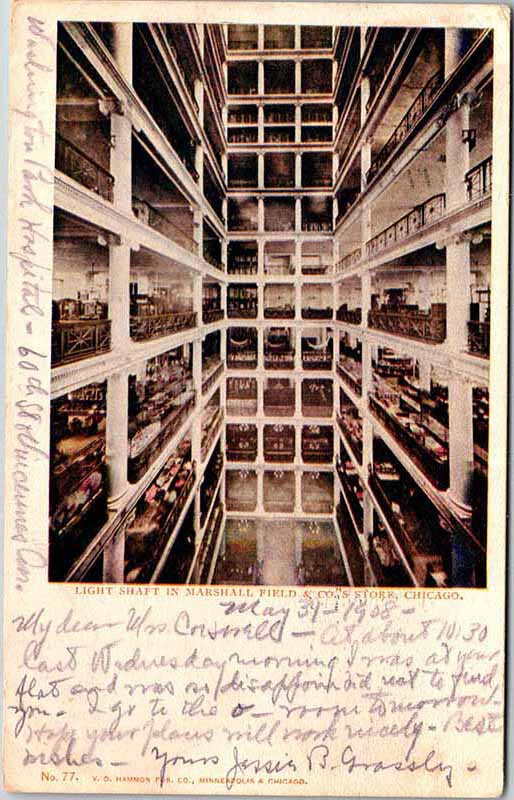 Washington Park Hospital - 60th St & Vincennes Ave.
LIGHT SHAFT IN MARSHALL FIELD & CO.,'S STORE, CHICAGO.
May 31 - 1908 -
My dear Mrs. - At about 10:30
last Wednesday morning I was at your
flat and was so disappointed not to find
you. I go to the o - room tomorrow.
Hope your plans will work nicely. Best
wishes - Yours Jessie B. Grassly.
No. 77. V. O. HAMMON PUB. CO., MINNEAPOLIS & CHICAGO.